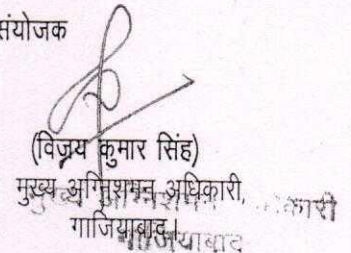 संयोजक
(विजय कुमार सिंह)
मुख्य अग्निशमन अधिकारी,
गाजियाबाद।
मुख्य अग्निशमन अधिकारी
गाजियाबाद